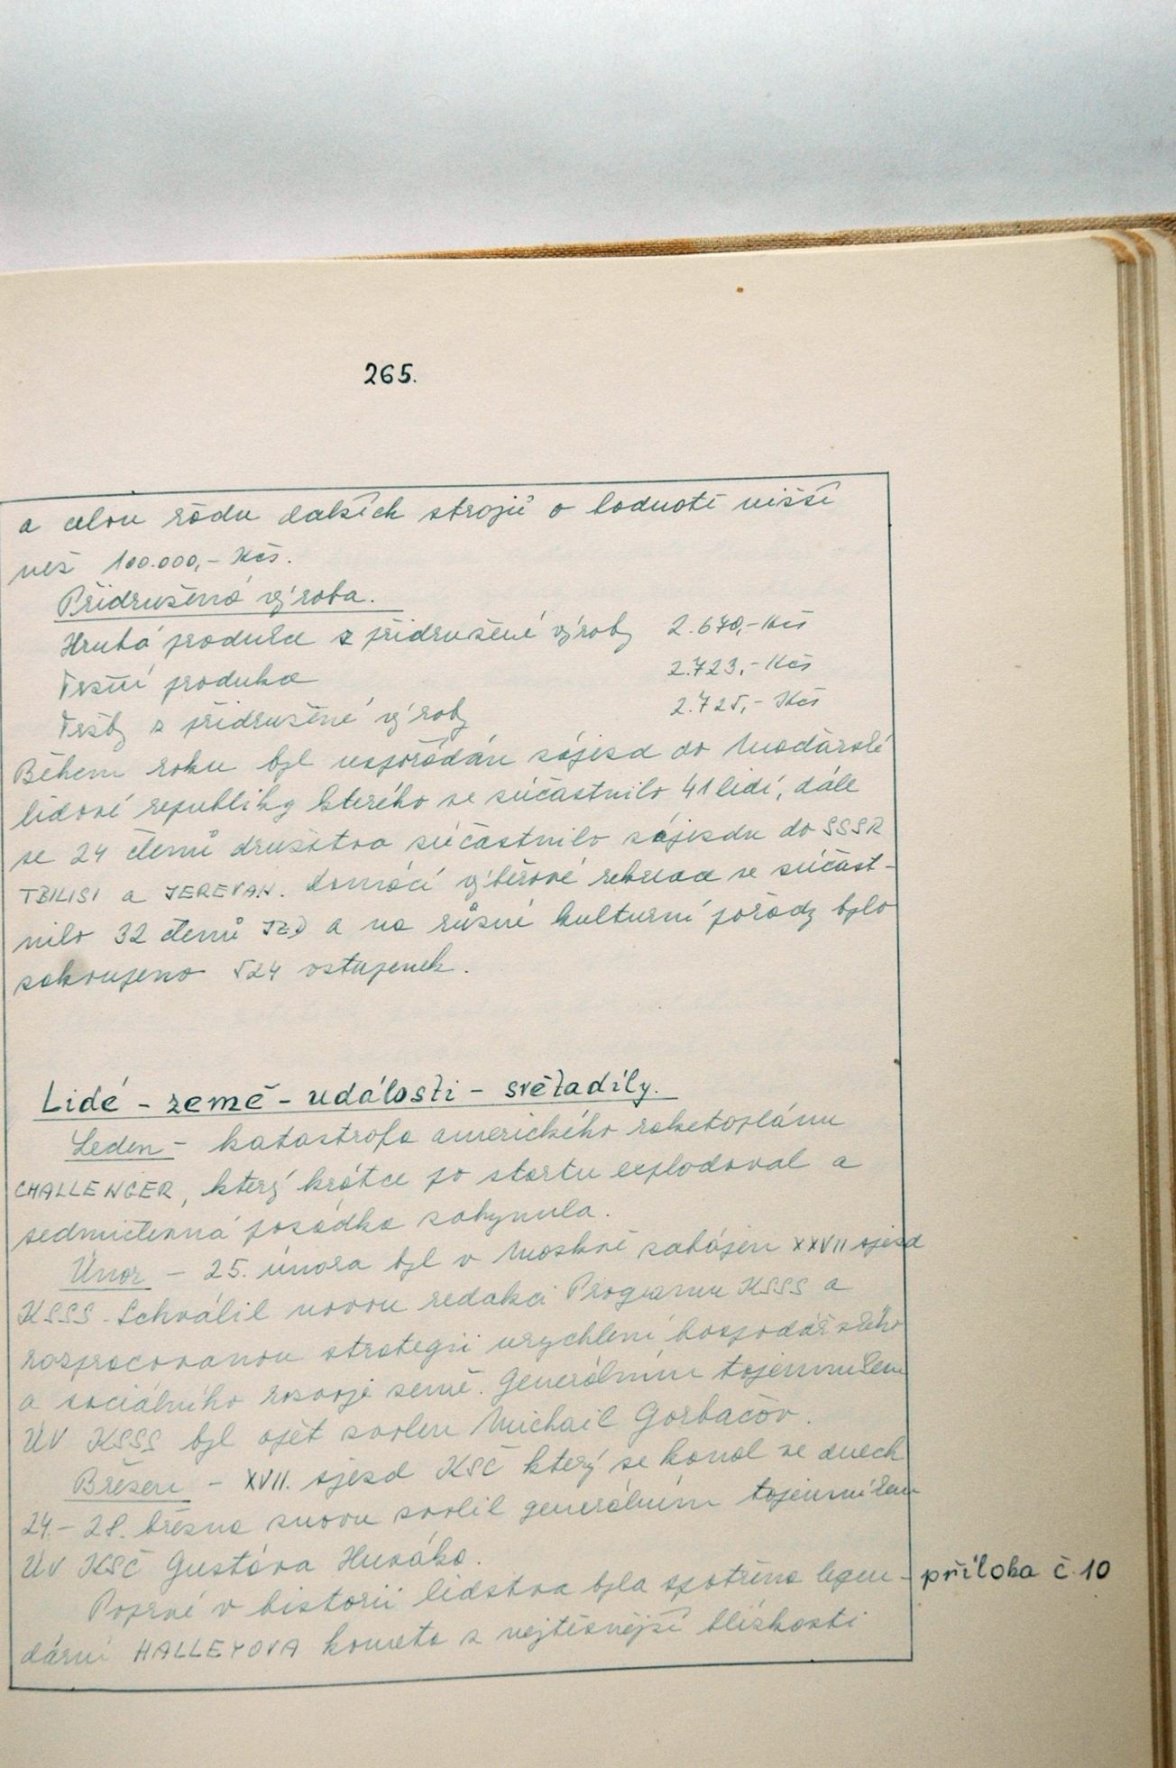 265.
a celou řádu dalších strojů o hodnotě nižší
než 100.000,- Kčs.
Přidružená výroba.
Hrubá produkce z přidružené výroby 2.670,- Kčs
Tržní produkce 2.723,- Kčs
Tržby z přidružené výroby 2.725,- Kčs
Během roku byl uspořádán zájezd do Maďarské
lidové republiky kterého se súčastnilo 41 lidí, dále
se 24 členů družstva súčastnilo zájezdu do SSSR
TBILISI a JEREVAN. Domácí výběrové rekreace se súčast-
nilo 32 členů JZD a na různé kulturní pořady bylo
zakoupeno 524 vstupenek.
Lidé - země - události - světadíly.
Leden - katastrofa amerického raketoplánu
CHALLENGER, který krátce po startu explodoval a
sedmičlenná posádka zahynula.
Únor - 25. února byl v Moskvě zahájen XXVII sjezd
KSSS. Schválil novou redakci Programu KSSS a
rozpracovanou strategii urychlení hospodářského
a sociálního rozvoje země. Generálním tajemníkem
ÚV KSSS byl opět zvolen Michail Gorbačov.
Březen - XVII. sjezd KSČ který se konal ve dnech
24.- 28. března znovu zvolil generálním tajemníkem
ÚV KSČ Gustáva Husáka.
Poprvé v historii lidstva byla spatřena legen- příloha č. 10
dární HALLEYOVA kometa z nejtěsnější blízkosti